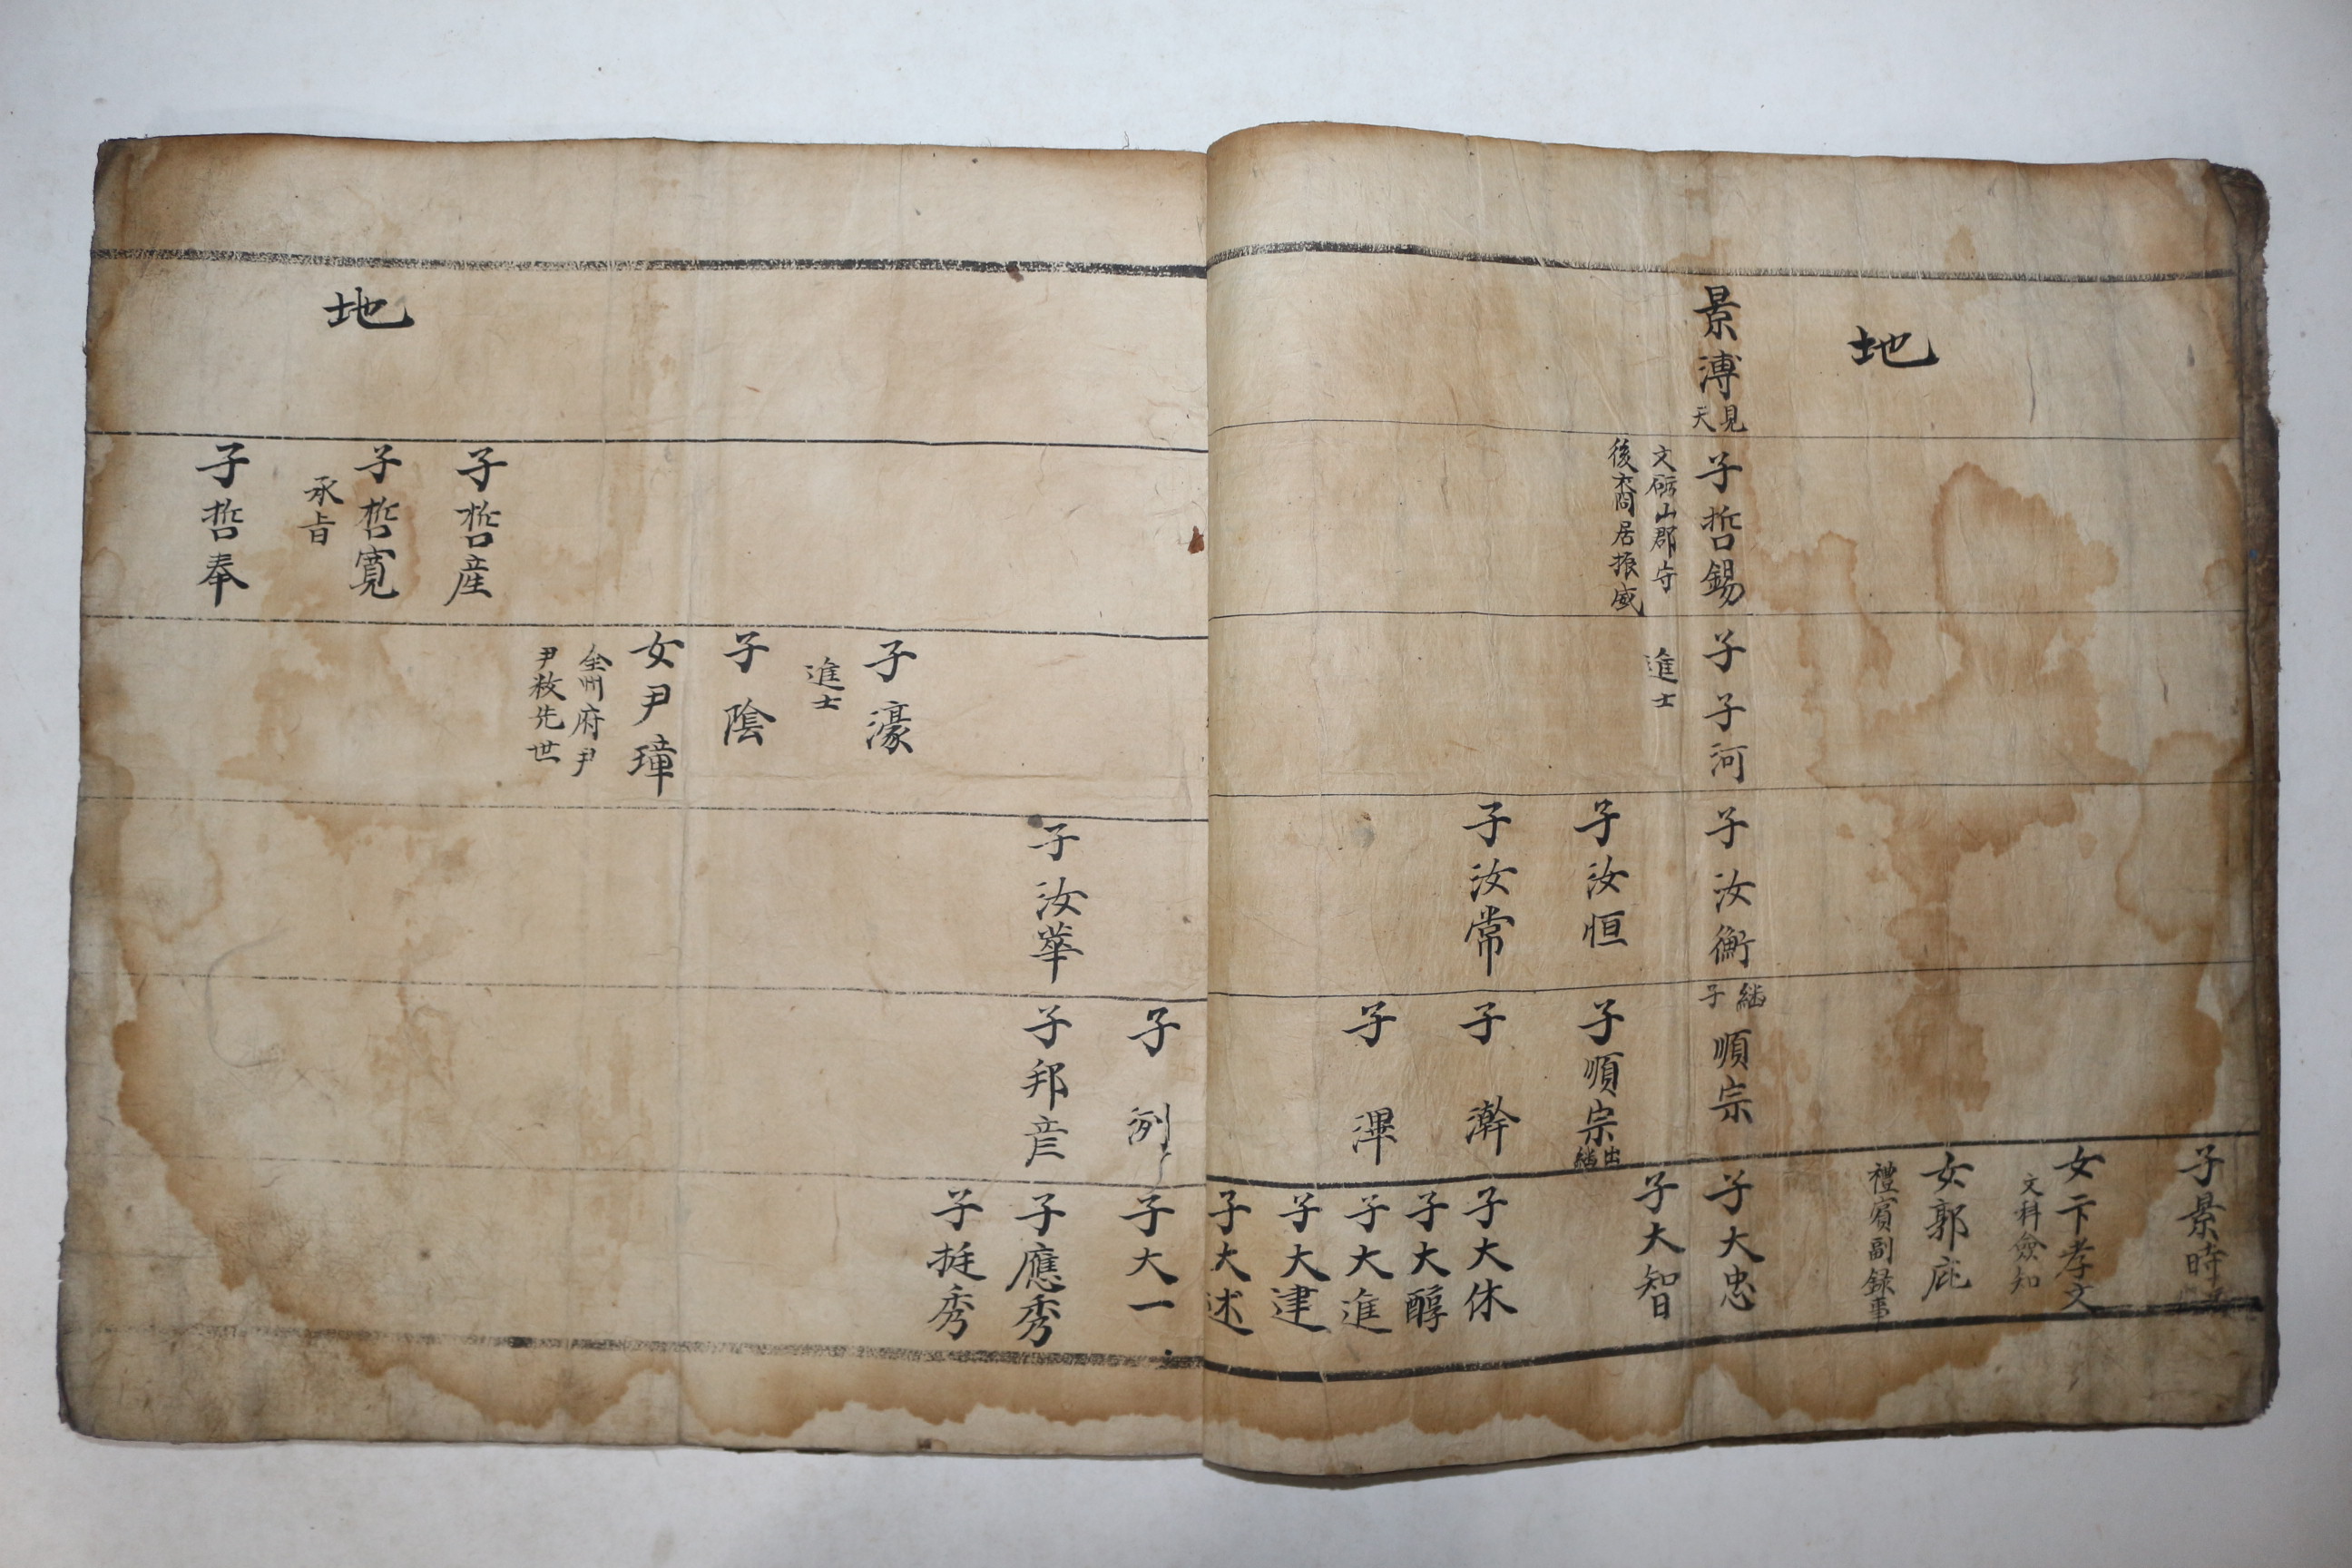 子景時
女卞孝文
文科僉知
女郭庇
禮賓副録事
地
景溥
見天
子哲錫
文礪山郡守
後裔居振威
子子河
進士
子汝衡
子汝恒
子汝常
繼子順宗
子順宗
出繼
子澣
子㶉
子大忠
子大智
子大休
子大醇
子大進
子大建
子大述
子濠
進士
子陰
女尹璋
全州府尹
尹敉先世
子汝華
子例
子邦彦
子大一
子應秀
子挺秀
地
子哲産
子哲寬
承旨
子哲奉